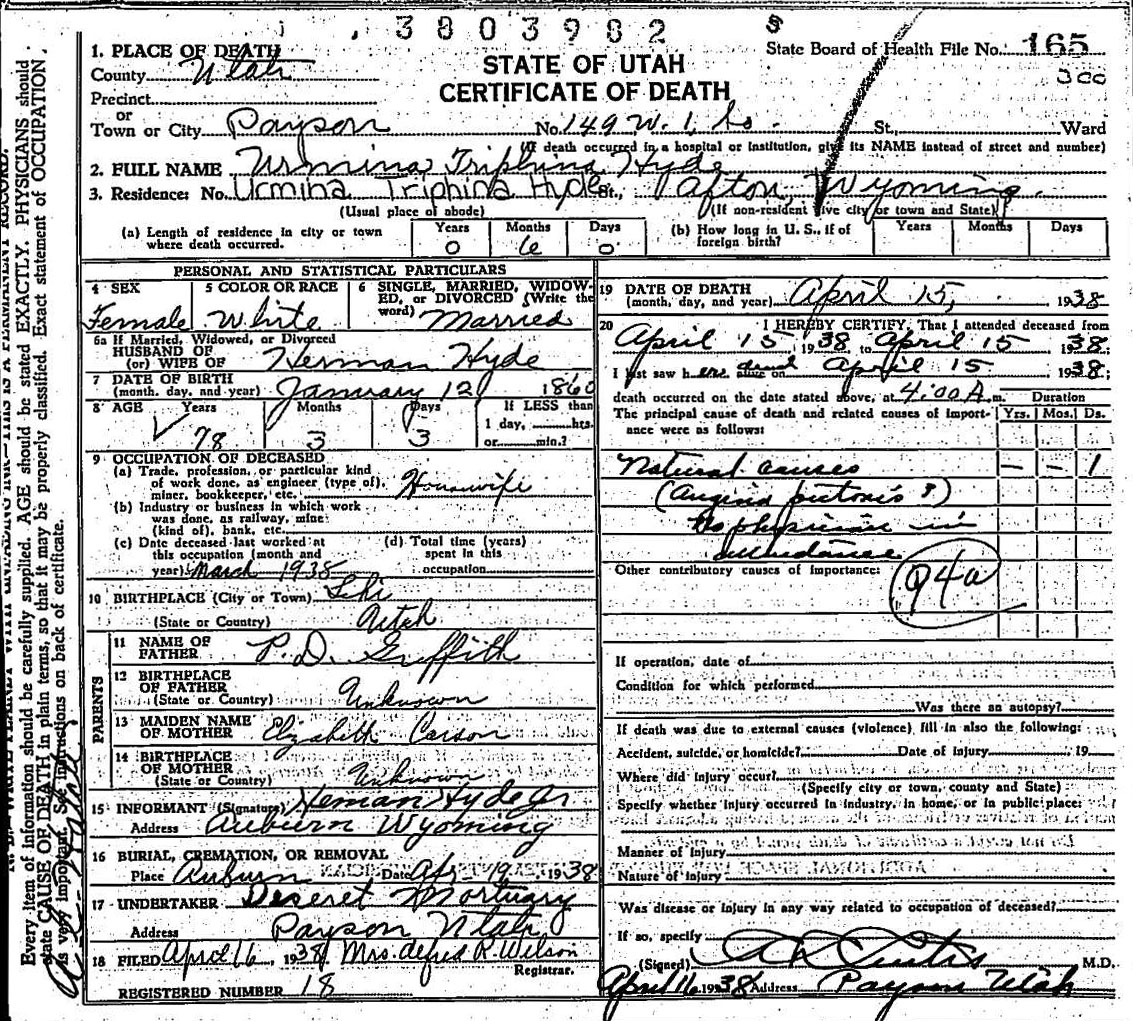 3803982 5
State Board of Health File No. 165
300
STATE OF UTAH
CERTIFICATE OF DEATH
1. PLACE OF DEATH
County Utah
Precinct
or
Town or City Payson No. 149 W. 1. So. St., Ward
(If death occurred in a hospital or institution, give its NAME instead of street and number)
2. FULL NAME Urmina Triphina Hyde
3. Residence: No. Urmina Triphina Hyde St., Afton, Wyoming.
(Usual place of abode) (If non-resident give city or town and State)
(a) Length of residence in city or town where death occurred. Years 0 Months 6 Days 0
(b) How long in U. S., if of foreign birth? Years Months Days
PERSONAL AND STATISTICAL PARTICULARS
4 SEX Female
5 COLOR OR RACE White
6 SINGLE, MARRIED, WIDOWED, or DIVORCED (Write the word) Married
6a If Married, Widowed, or Divorced
HUSBAND OF
(or) WIFE OF Herman Hyde
7 DATE OF BIRTH
(month, day, and year) January 12 1860
8 AGE Years 78 Months 3 Days 3 If LESS than 1 day, hrs. or min.?
9 OCCUPATION OF DECEASED
(a) Trade, profession, or particular kind
of work done, as engineer (type of),
miner, bookkeeper, etc. Housewife
(b) Industry or business in which work
was done, as railway, mine
(kind of), bank, etc.
(c) Date deceased last worked at
this occupation (month and
year) March 1938
(d) Total time (years)
spent in this
occupation
10 BIRTHPLACE (City or Town) Lehi
(State or Country) Utah
PARENTS
11 NAME OF
FATHER P. D. Griffith
12 BIRTHPLACE
OF FATHER
(State or Country) Unknown
13 MAIDEN NAME
OF MOTHER Elizabeth Carson
14 BIRTHPLACE
OF MOTHER
(State or Country) Unknown
15 INFORMANT (Signature) Heman Hyde Jr
Address Auburn Wyoming
16 BURIAL, CREMATION, OR REMOVAL
Place Auburn Date Apr 19, 1938
17 UNDERTAKER Deseret Mortuary
Address Payson Utah
18 FILED April 16, 1938 Mrs. Alfred R. Wilson
Registrar.
REGISTERED NUMBER 18
19 DATE OF DEATH
(month, day, and year) April 15, 1938
20 I HEREBY CERTIFY, That I attended deceased from
April 15 1938, to April 15 1938.
I last saw her alive dead on April 15 1938;
death occurred on the date stated above, at 4:00 A. m.
Duration
The principal cause of death and related causes of importance were as follows: Yrs. Mos. Ds.
Natural causes - - 1
(Angina pectoris ?)
No physician in
attendance
Other contributory causes of importance: 94a
If operation, date of
Condition for which performed
Was there an autopsy?
If death was due to external causes (violence) fill in also the following:
Accident, suicide, or homicide? Date of Injury 19
Where did injury occur?
(Specify city or town, county and State)
Specify whether injury occurred in industry, in home, or in public place:
Manner of Injury
Nature of Injury
Was disease or injury in any way related to occupation of deceased?
If so, specify
(Signed) A Curtis M.D.
April 16 1938 Address Payson Utah
Every item of information should be carefully supplied. AGE should be stated EXACTLY. PHYSICIANS should
state CAUSE OF DEATH in plain terms, so that it may be properly classified. Exact statement of OCCUPATION
is very important. See instructions on back of certificate.